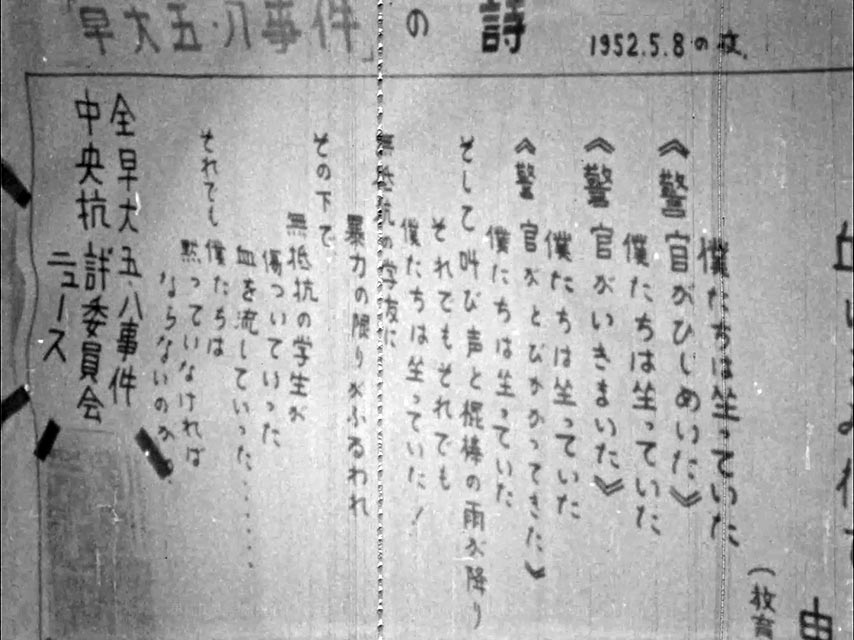 「早大五・八事件」の詩 1952.5.8の夜
血
(教育
由
僕たちは坐っていた
《警官がひしめいた》
僕たちは坐っていた
《警官がいきまいた》
僕たちは坐っていた
《警官がとびかかってきた》
僕たちは坐っていた
そして叫び声と棍棒の雨が降り
それでもそれでも
僕たちは坐っていた!
無抵抗の学友に
暴力の限りがふるわれ
その下で
無抵抗の学生が
傷ついていった
血を流していった・・・・・・
それでも
僕たちは
黙っていなければ
ならないのか。
全早大五・八事件
中央抗議委員会
ニュース